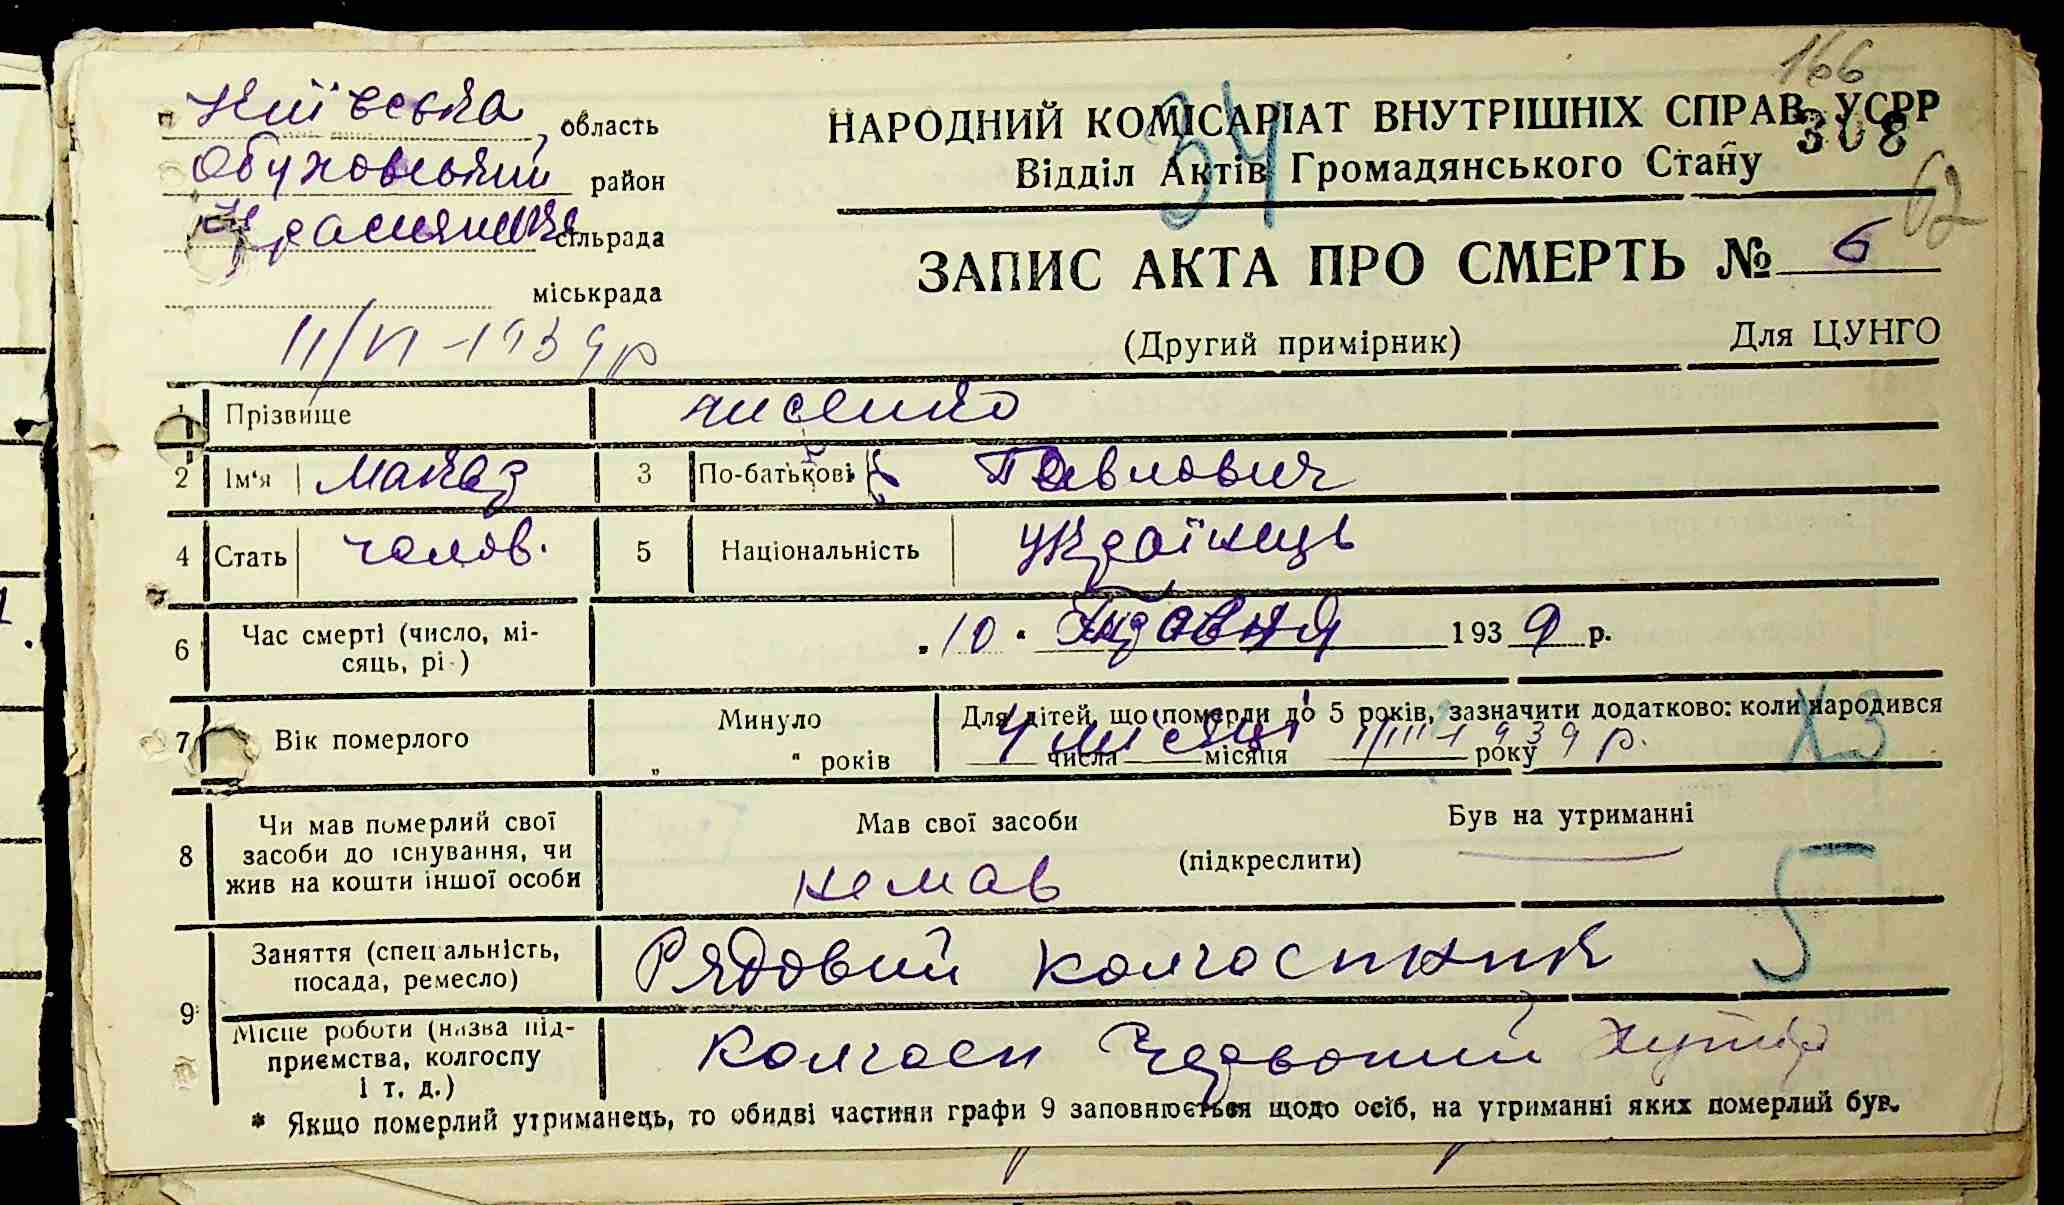 166
Київська, область
НАРОДНИЙ КОМІСАРІАТ ВНУТРІШНІХ СПРАВ УСРР
34
308
Обуховський район
Відділ Актів Громадянського Стану
62
сільрада
ЗАПИС АКТА ПРО СМЕРТЬ № 6
міськрада
11/VI-1939р
(Другий примірник) Для ЦУНГО
1 Прізвище
2 Ім'я 3 По-батькові Павлович
4 Стать чолов. 5 Національність Українець
6 Час смерті (число, мі-
сяць, рі-) 10 1939 р.
7 Вік померлого Минуло
" " років
Для дітей, що померли до 5 років, зазначити додатково: коли народився
4 місяці 1/III-1939 р.
числа місяця року
8 Чи мав померлий свої
засоби до існування, чи
жив на кошти іншої особи
Мав свої засоби Був на утриманні
(підкреслити)
немав
5
9 Заняття (спеціальність,
посада, ремесло) Рядовий колгоспник
Місце роботи (назва під-
приємства, колгоспу
і т. д.) Колгосп Червоний Хутір
* Якщо померлий утриманець, то обидві частини графи 9 заповнюється щодо осіб, на утриманні яких померлий був.